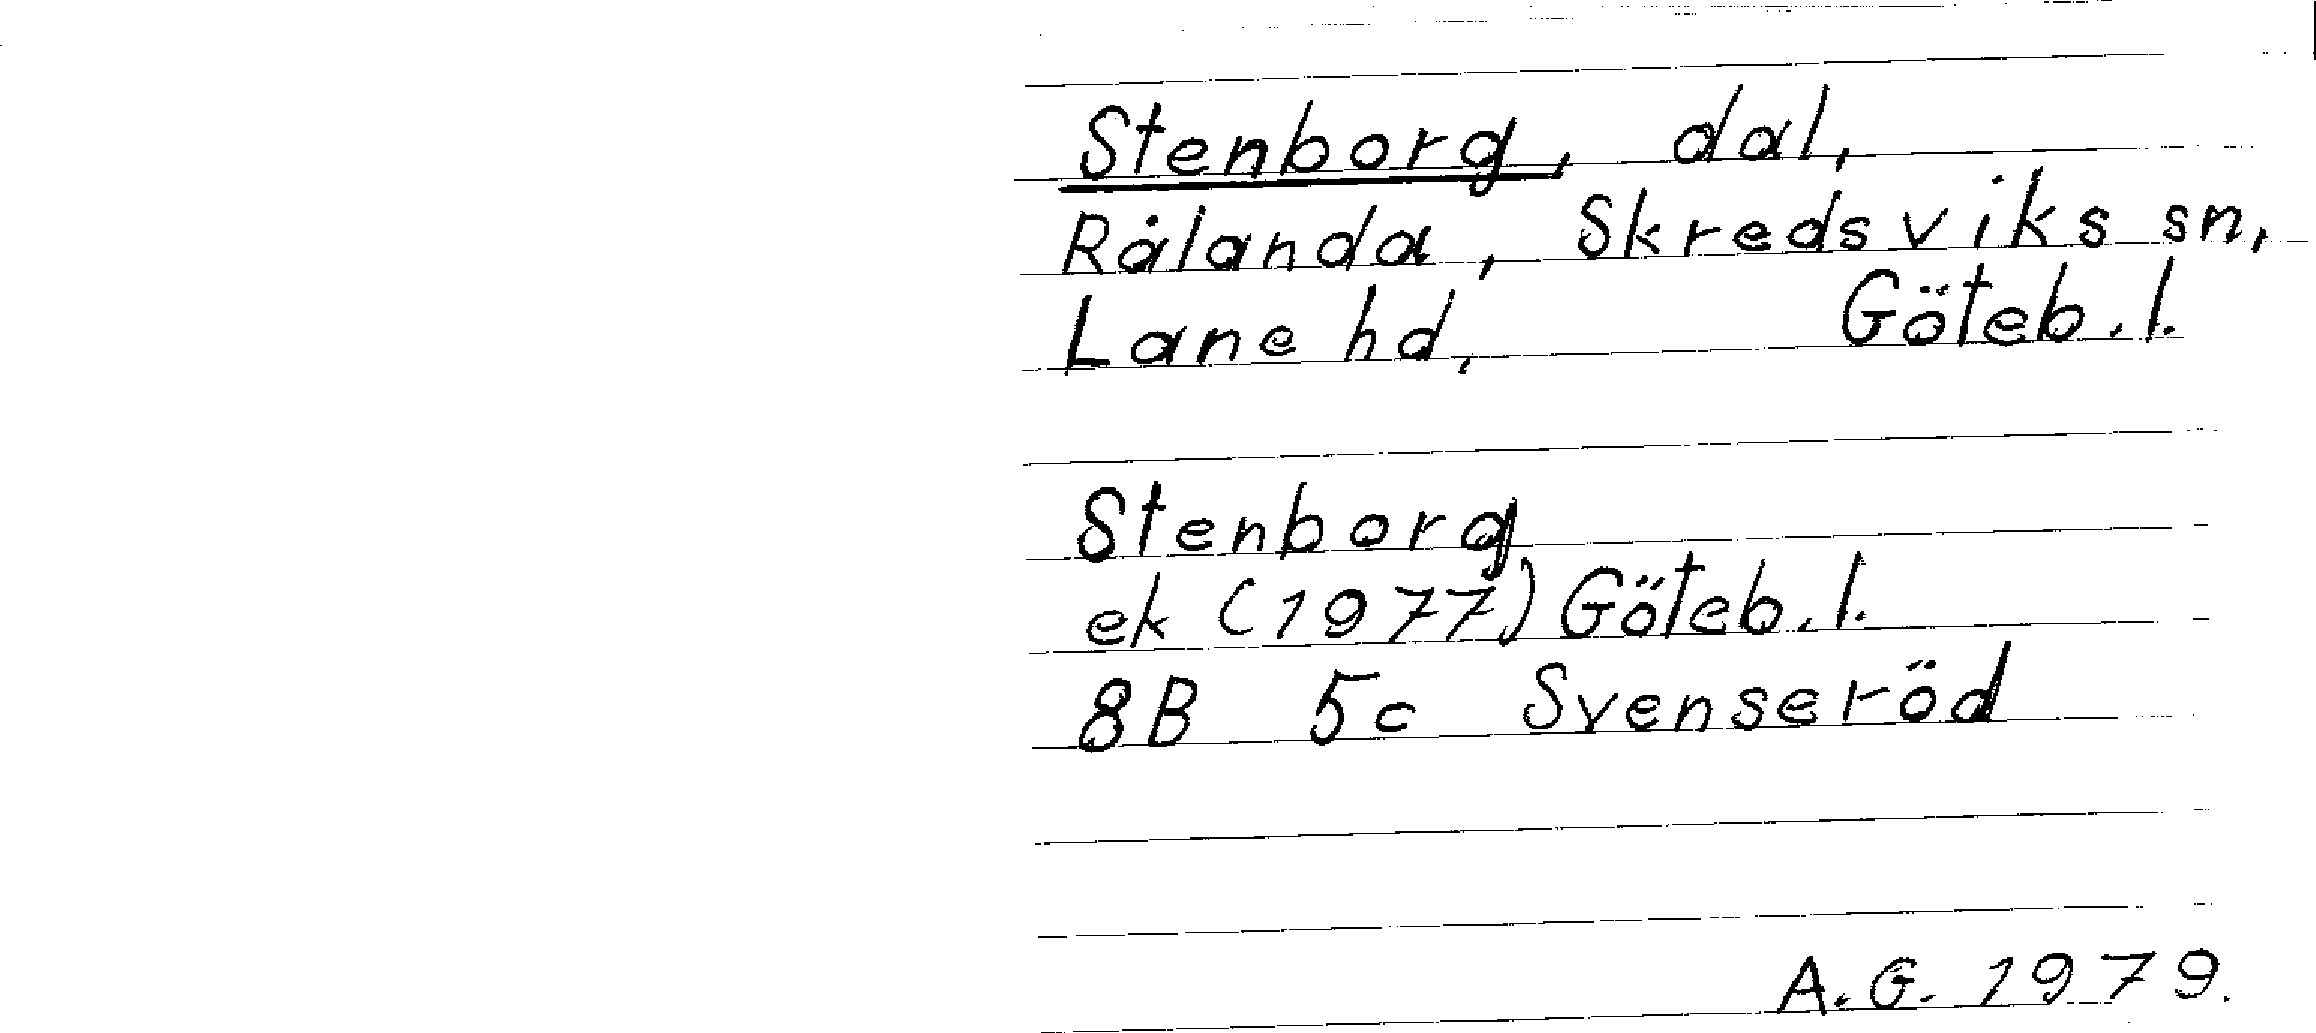 Stenborg, dal,
Rålanda, Skredsviks sn,
Lane hd, Göteb. l.
Stenborg
ek (1977) Göteb. l.
8B 5c Svenseröd
A.G. 1979.